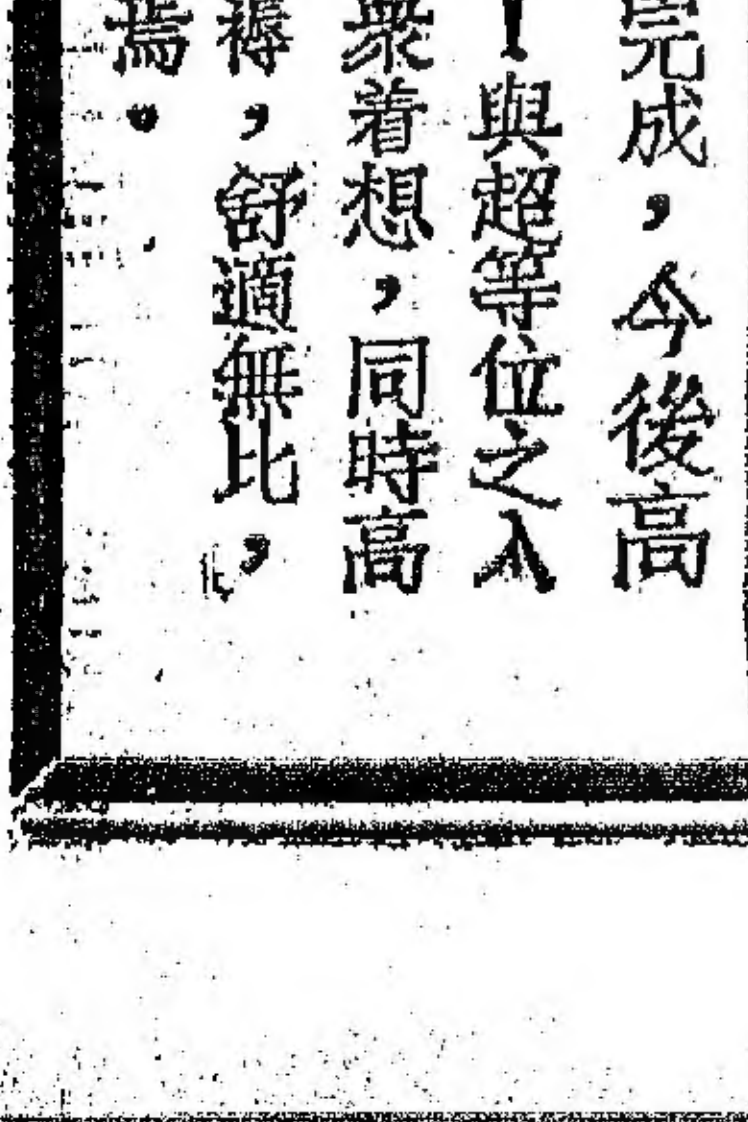 完成，今後高
！與超等位之入
衆着想，同時高
褥，舒適無比，
焉。